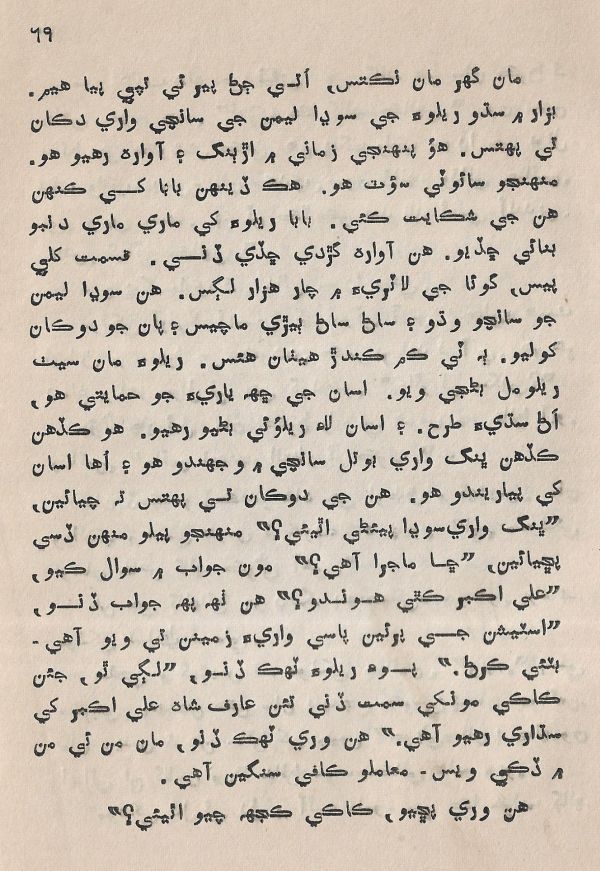 ٦٩
مان گهر مان نڪتس, اُتي جڻ پير ئي تپي پيا هيم.
بزار ۾ سڌو ريلوءِ جي سوڍا ليمن جي سانچي واري دڪان
تي پهتس. هوُ پنهنجي زماني ۾ اڙٻنگ ۽ آواره رهيو هو.
منهنجو سائوٽي سؤٽ هو. هڪ ڏينهن بابا کي ڪنهن
هن جي شڪايت ڪئي. بابا ريلوءِ کي ماري ماري دنبو
بنائي ڇڏيو. هن آواره گردي ڇڏي ڏني. قسمت کلي
پيس, گوئا جي لاٽريءَ ۾ چار هزار لڳس. هن سوڍا ليمن
جو سانچو وڌو ۽ ساڻ ساڻ ٻيڙي ماچيس ۽ پان جو دوڪان
کوليو. ٻه ٽي ڪم ڪندڙ هيٺان هئس. ريلوءِ مان سيٺ
ريلومل بڻجي ويو. اسان جي ڇهه ياريءَ جو حمايتي هو,
اڻ سڌيءَ طرح. ۽ اسان لاءِ ريلوُئي بڻيو رهيو. هو ڪڏهن
ڪڏهن ڀنگ واري بوتل سانچي ۾ وجهندو هو ۽ اُها اسان
کي پياريندو هو. هن جي دوڪان تي پهتس ته چيائين,
”ڀنگ واري سوڍا پيئڻي اٿيئي؟“ منهنجو پيلو منهن ڏسي
پڇيائين, ”ڇا ماجرا آهي؟“ مون جواب ۾ سوال ڪيو,
”علي اڪبر ڪٿي هوندو؟“ هن ٺهه پهه جواب ڏنو,
”اسٽيشن جي پرئين پاسي واريءَ زمينن تي ويو آهي-
بٽئي ڪرڻ.“ پوءِ ريلوءَ ٽهڪ ڏنو, ”لڳي ٿو, جئن
ڪاڪي مونکي سمت ڏني تئن عارف شاهه علي اڪبر کي
سڌاري رهيو آهي.“ هن وري ٽهڪ ڏنو, مان من ئي من
۾ ڏڪي ويس- معاملو ڪافي سنگين آهي.
هن وري پڇيو, ڪاڪي ڪجهه چيو اٿيئي؟“